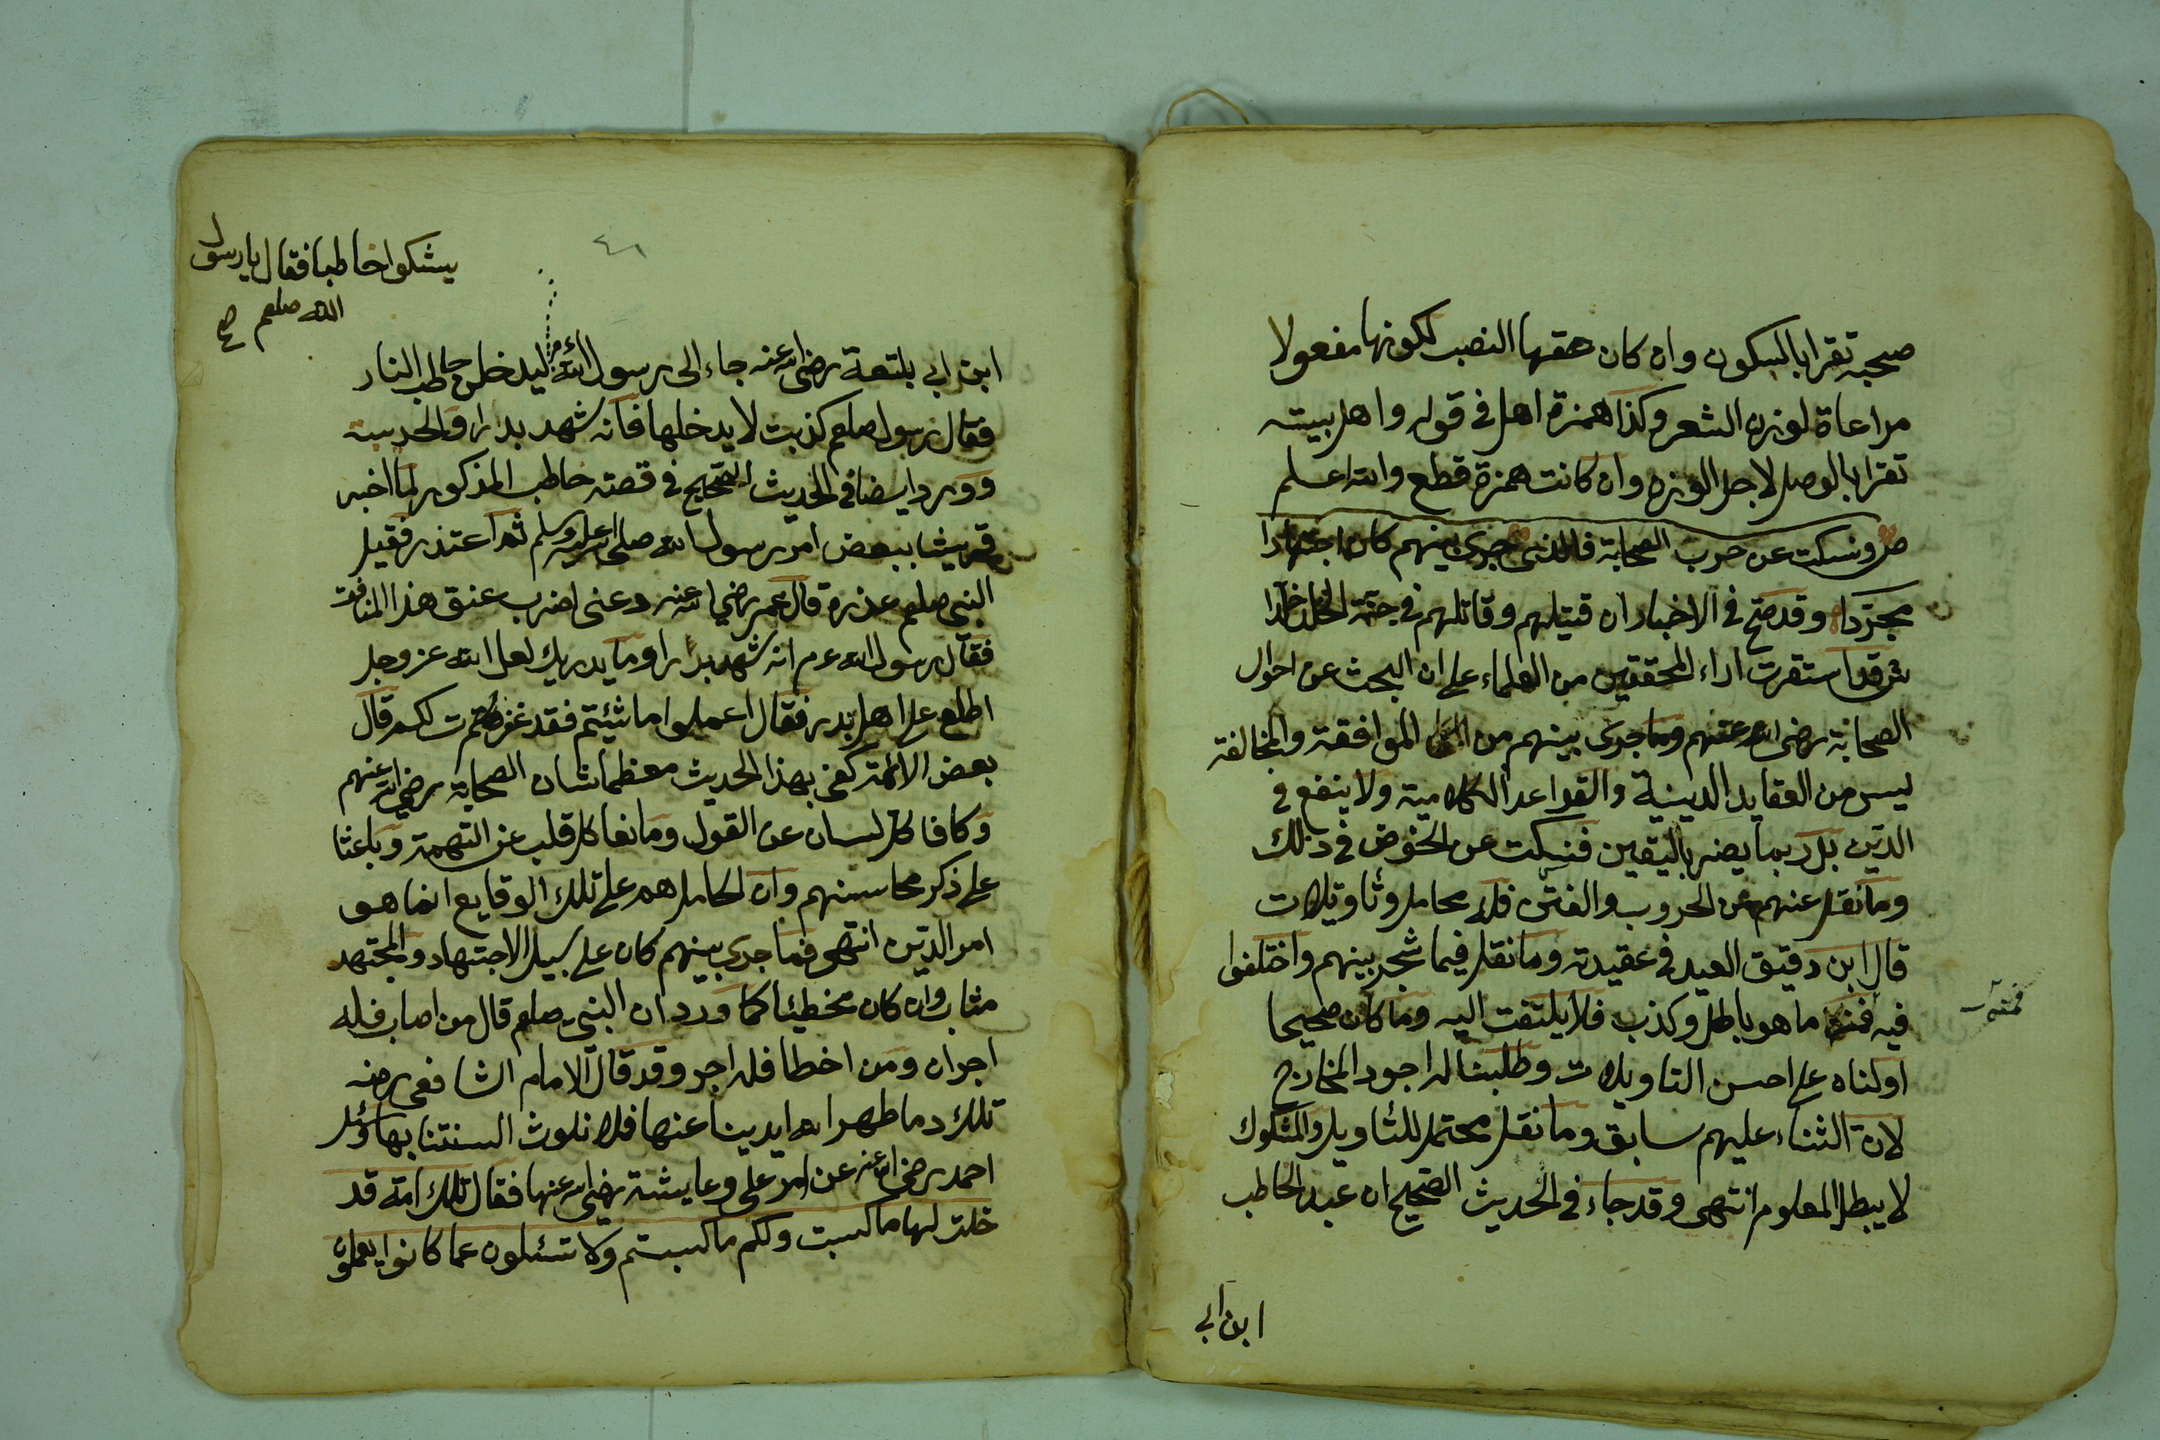 صحبه تقرا بالسكون وان كان حقها النصب لكونها مفعولا
مراعاة لوزن الشعر وكذا همزة اهل في قوله واهل بيته
تقرا بالوصل لاجل الوزن وان كانت همزة قطع والله اعلم
ص ونسكت عن حرب الصحابة فالذي جرى بينهم كان اجتهادا
مجردا وقد صح في الاخبار ان قتيلهم وقاتلهم في جنة الخلد خلدا
ش قد استقرت اراء المحققين من العلماء على ان البحث عن احوال
الصحابة رضي الله عنهم وما جرى بينهم من الموافقة والمخالفة
ليس من العقايد الدينية والقواعد الكلامية ولا ينفع في
الدين بل ربما يضر باليقين فنسكت عن الخوض في ذلك
وما نقل عنهم من الحروب والفتن فله محامل وتاويلات
قال ابن دقيق العيد في عقيدته وما نقل فيما شجر بينهم واختلفوا
فيه فمنه ما هو باطل وكذب فلا يلتفت اليه وما كان صحيحا
فمنه
اولناه على احسن التاويلات وطلبنا له اجود المخارج
لان الثناء عليهم سابق وما نقل محتمل للتاويل والمشكوك
لا يبطل المعلوم انتهى وقد جاء في الحديث الصحيح ان عبد الحاطب
ابن ابي
٤٨
يشكوا حاطبا فقال يا رسول
الله صلعم صح
ابن ابي بلتعة رضي الله عنه جاء الى رسول الله ليدخلن حاطب النار
فقال رسول صلعم كذبت لا يدخلها فانه شهد بدرا والحديبية
وورد ايضا في الحديث الصحيح في قصته حاطب المذكور لما اخبر
قريشا ببعض امر رسول الله صلى الله عليه وسلم ثم اعتذر فقبل
النبي صلعم عذره قال عمر رضي الله عنه دعني اضرب عنق هذا المنافق
فقال رسول الله عم انه شهد بدرا وما يدريك لعل الله عز وجل
اطلع على اهل بدر فقال اعملوا ما شيتم فقد غفرت لكم قال
بعض الائمة كفى بهذا الحديث معظما شان الصحابة رضي الله عنهم
وكافا كل لسان عن القول ومانعا كل قلب عن التهمة وباعثا
على ذكر محاسنهم وان الحامل لهم على تلك الوقايع انما هو
امر الدين انتهى فما جرى بينهم كان على سبيل الاجتهاد والمجتهد
مثاب وان كان مخطيئا كما ورد ان النبي صلعم قال من اصاب فله
اجران ومن اخطا فله اجر وقد قال الامام الشافعي رضه
تلك دما طهر الله ايدينا عنها فلا نلوث السنتنا بها وسئل
احمد رضي الله عنه عن امر علي وعايشة رضي الله عنها فقال تلك امة قد
خلت لها ما كسبت ولكم ما كسبتم ولا تسئلون عما كانوا يعملون